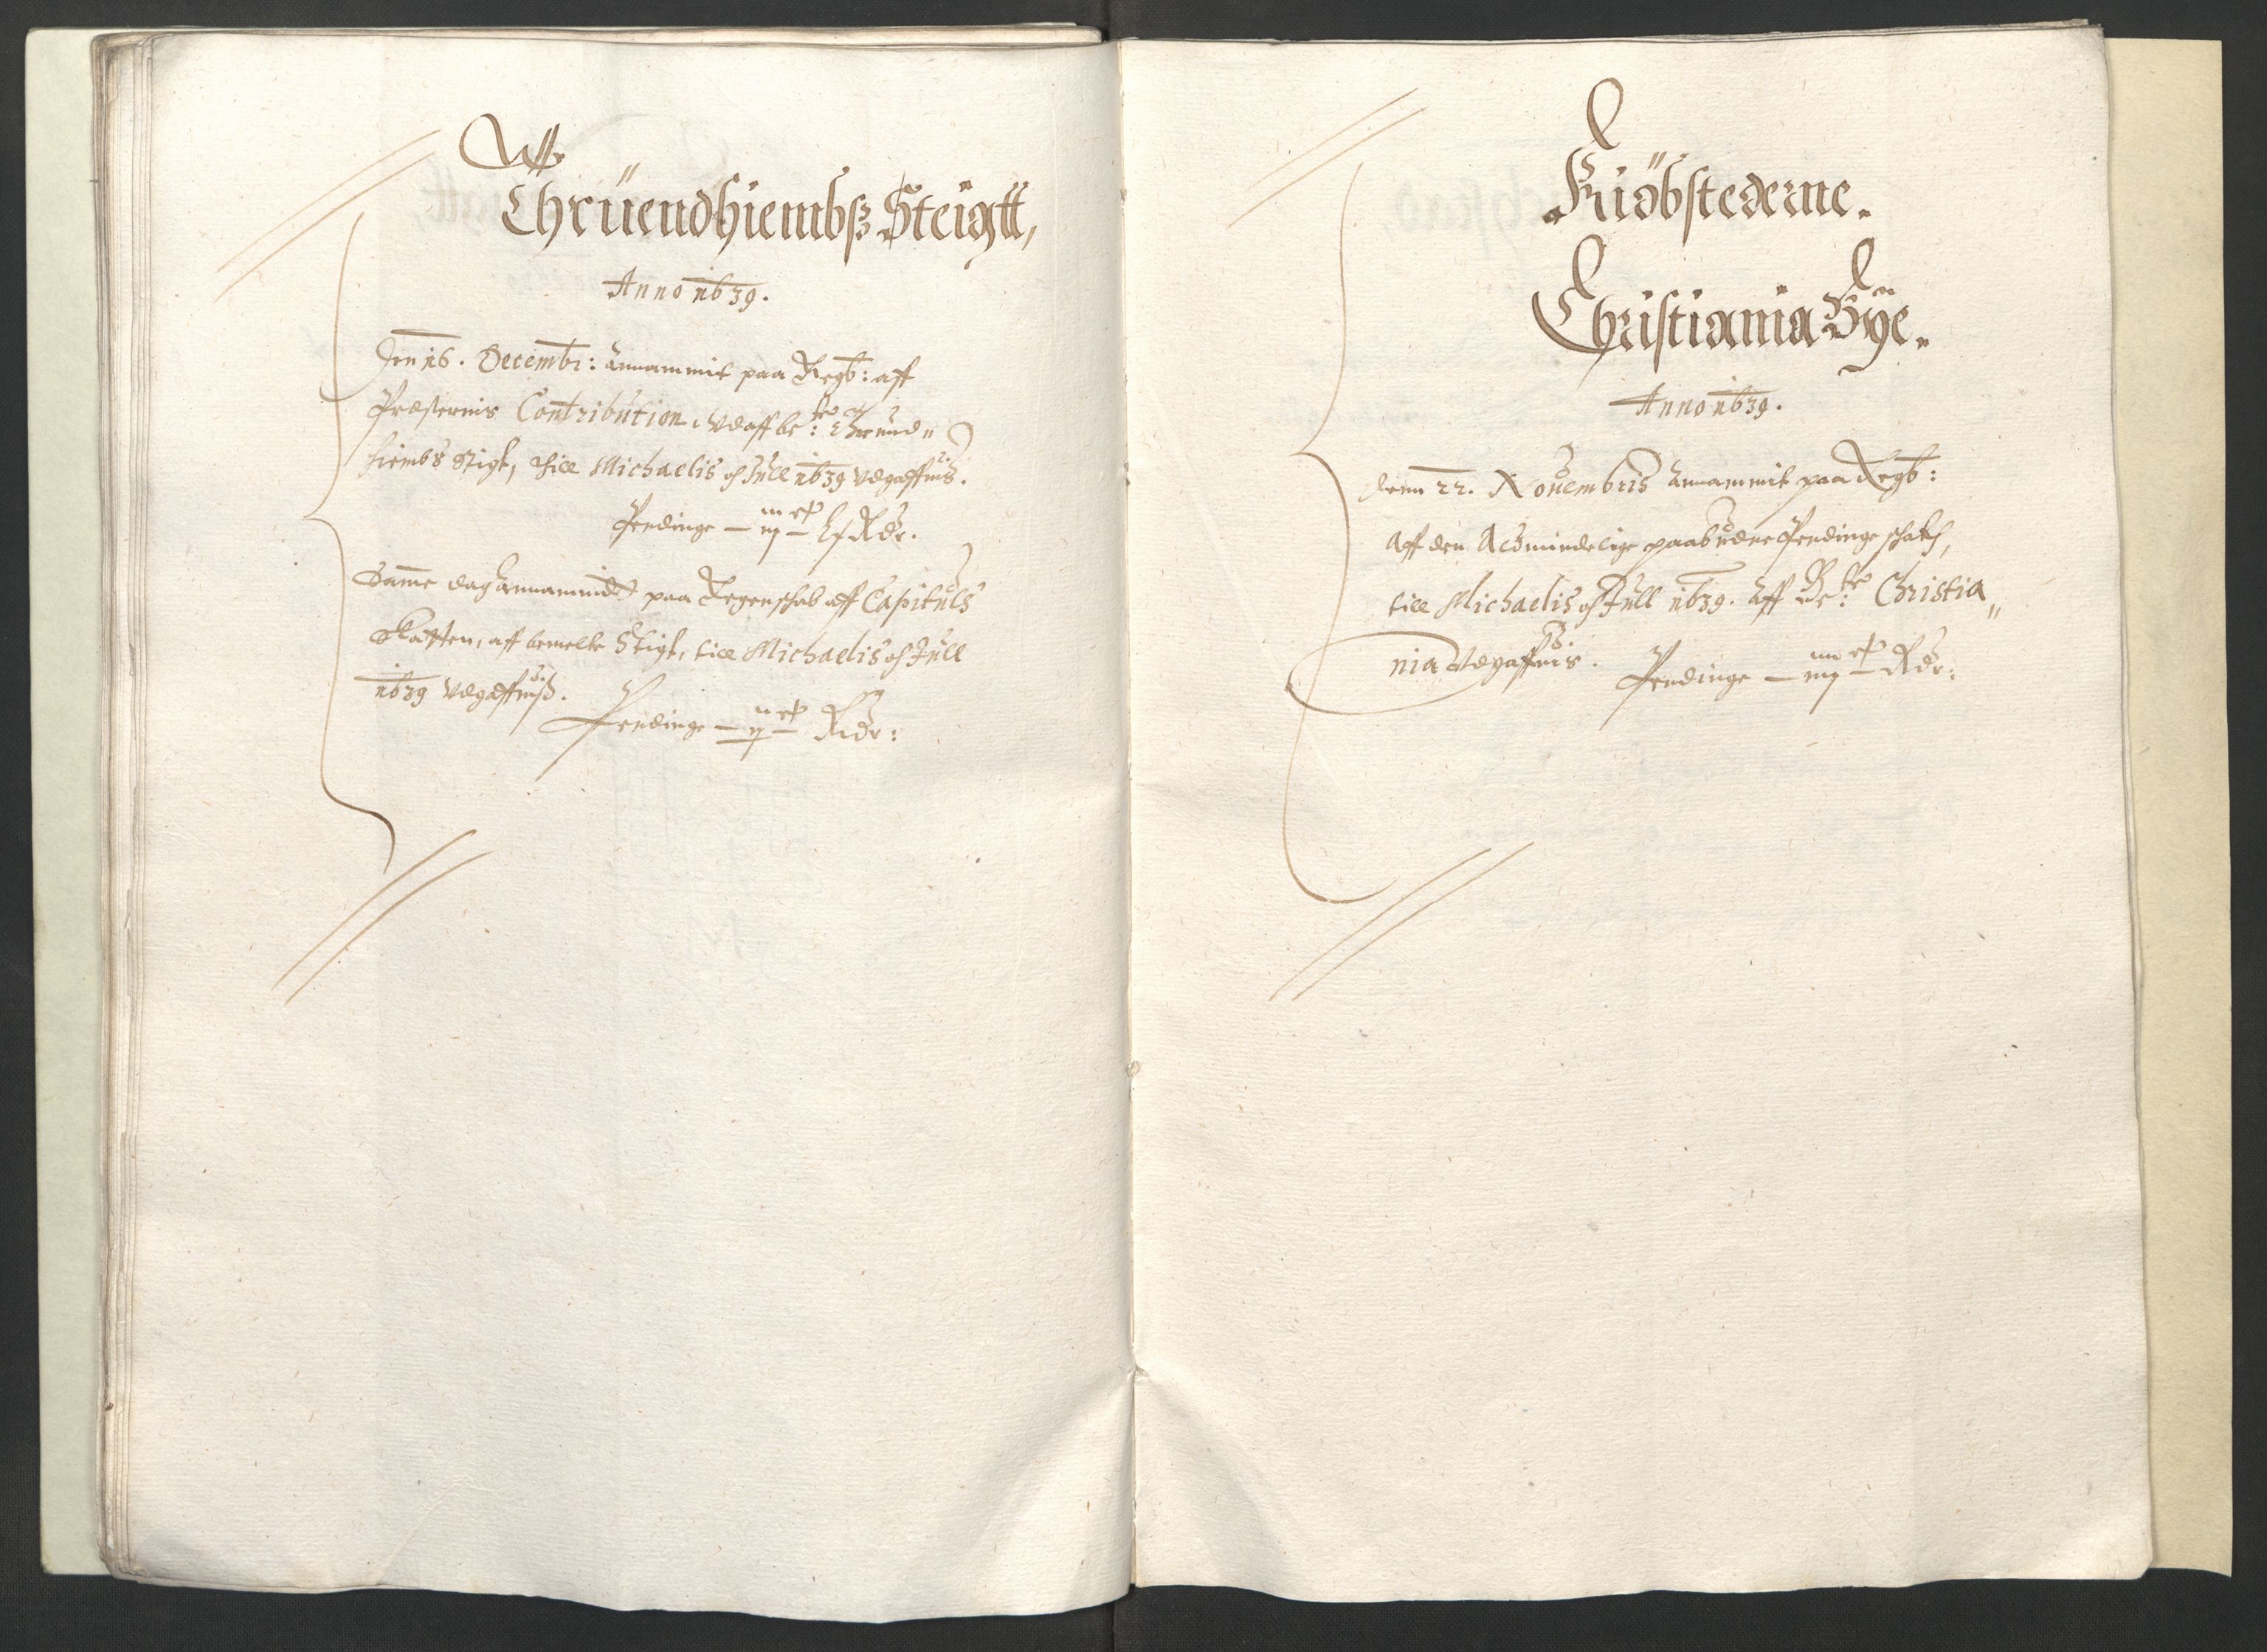 Thrüendhiembß Steigtt,
Anno 1639.
Den 16. Decembr: Annammit paa Regb: aff
Præsternis Contribution, Udaff be:te Thrund„
hiembs Stigt, Till Michaelis oc Jull 1639 Udgaffnis.
Pendinge — Rdr.
Samme dag Annammidt paa Regenschab aff Capituls
Skatten, aff bemelte Stigt, till Michaelis oc Jull
1639 Udgaffniß.
Pendinge — Rdr:
Kiöbstederne.
Christiania Bÿe.
Anno 1639.
Denn 22. Nouembris Annammit paa Regb:
Aff den Almindelige paabudne Pendinge schatt,
till Michaelis oc Jull 1639. Aff Be:te Christia„
nia Udgaffnis. Pendinge — Rdr: